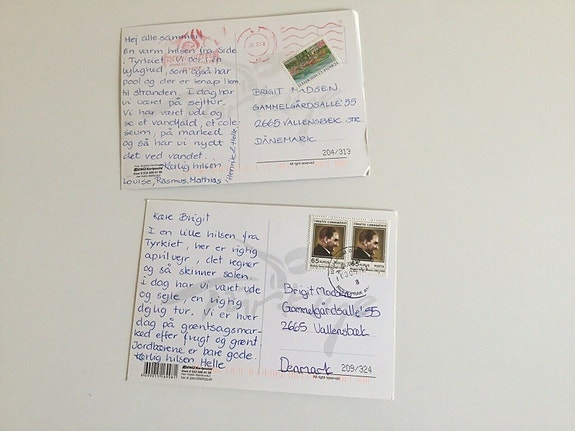 Hej allesammen
En varm hilsen fra Side
i Tyrkiet. Vi bor i en
lejlighed, som også har
pool og der er 1 km hen
til stranden. I dag har
vi været på sejltur.
Vi har været ude og
se et vandfald, et colo-
seum, på marked
og så har vi nydt
det ved vandet.
Kærlig hilsen
Louise, Rasmus, Mathias
Helle
BRIGIT MADSEN
GAMMELGÅRDSALLE' 95
2665 VALLENSBÆK
DÄNEMARK
204/313
All right reserved
Kære Brigit
I en lille hilsen fra
Tyrkiet, her er rigtig
aprilvejr, det regner
og så skinner solen.
I dag har vi været ude
og sejle, en rigtig
dejlig tur. Vi er hver
dag på grøntsagsmar-
ked efter frugt og grønt
Jordbærene er bare gode.
Kærlig hilsen Helle
65
65
Brigit Madsen
Gammelgårdsalle' 95
2665 Vallensbæk
Denmark
209/324
All right reserved